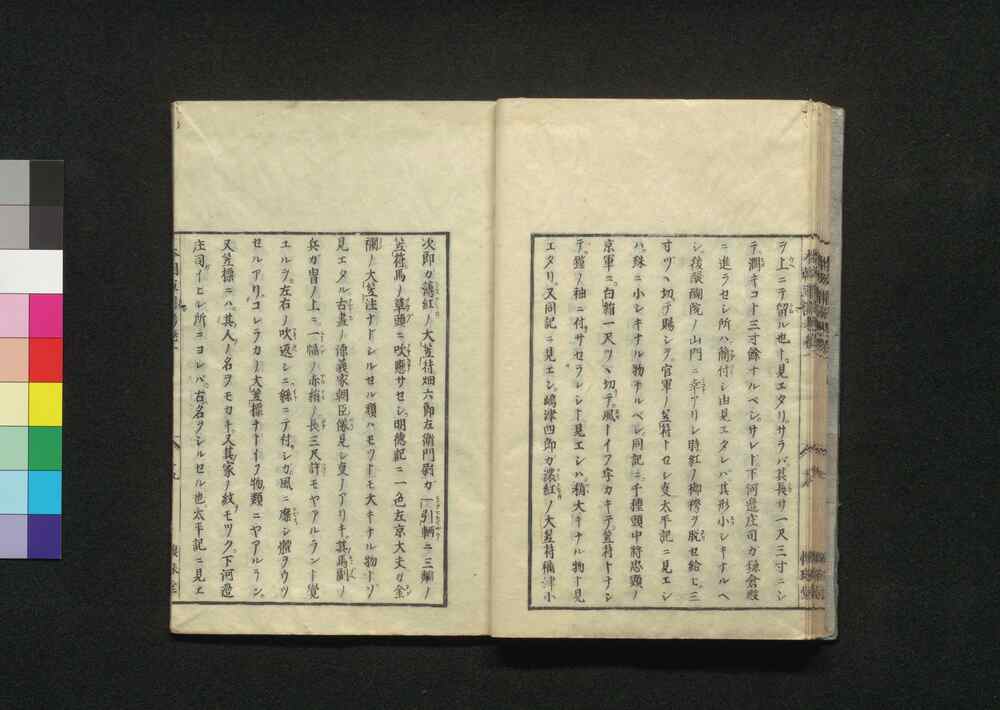 ラ上ニテ留ル也ト見エタリサラバ其長サ一尺三寸ニシ
テ濶キコト三寸餘ナルベシサレド下河邊庄司カ鎌倉殿
ニ進ラセシ所ハ簡付シ由見エタレバ其形小シキナルヘ
シ後醍醐院ノ山門ニ幸アリシ時紅ノ御袴ヲ脱セ給ヒ三
寸ツヽ切テ賜シヲ官軍ノ笠符トセシ事太平記ニ見エシ
ハ殊ニ小シキナル物ナルベシ同記ニ千種頭中将忠顕ノ
京軍ニ白絹一尺ツヽ切テ風トイフ字カキテ笠符トナシ
テ鎧ノ袖ニ付サセラレシト見エシハ稍大キナル物ト見
エタリ又同記ニ見エシ嶋津四郎カ濃紅ノ大笠符楠津小
次郎カ薄紅ノ大笠符畑六郎左衛門尉カ一引輌ニ三鱗ノ
笠符馬ノ草頭ニ吹懸サセシ明徳記ニ一色左京大夫カ金
襴ノ大笠注ナドシルセル類ハモツトモ大キナル物ナリ
見エタル古畫ノ源義家朝臣俤見シ事ノアリキ其馬副ノ
兵カ冑ノ上ニ一幅ノ赤絹ノ長三尺許モヤアルラント覚
ユルヲ左右ノ吹返シニ緒ニテ付シカ風ニ靡シ擢ヲウツ
セルアリコレラカノ大笠標ナドイフ物類ニヤアルラン
又笠標ニハ其人ノ名ヲモカキ又其家ノ紋モツク下河邉
庄司イヒシ所ニヨレバ右名ヲシルセル也太平記ニ見エ